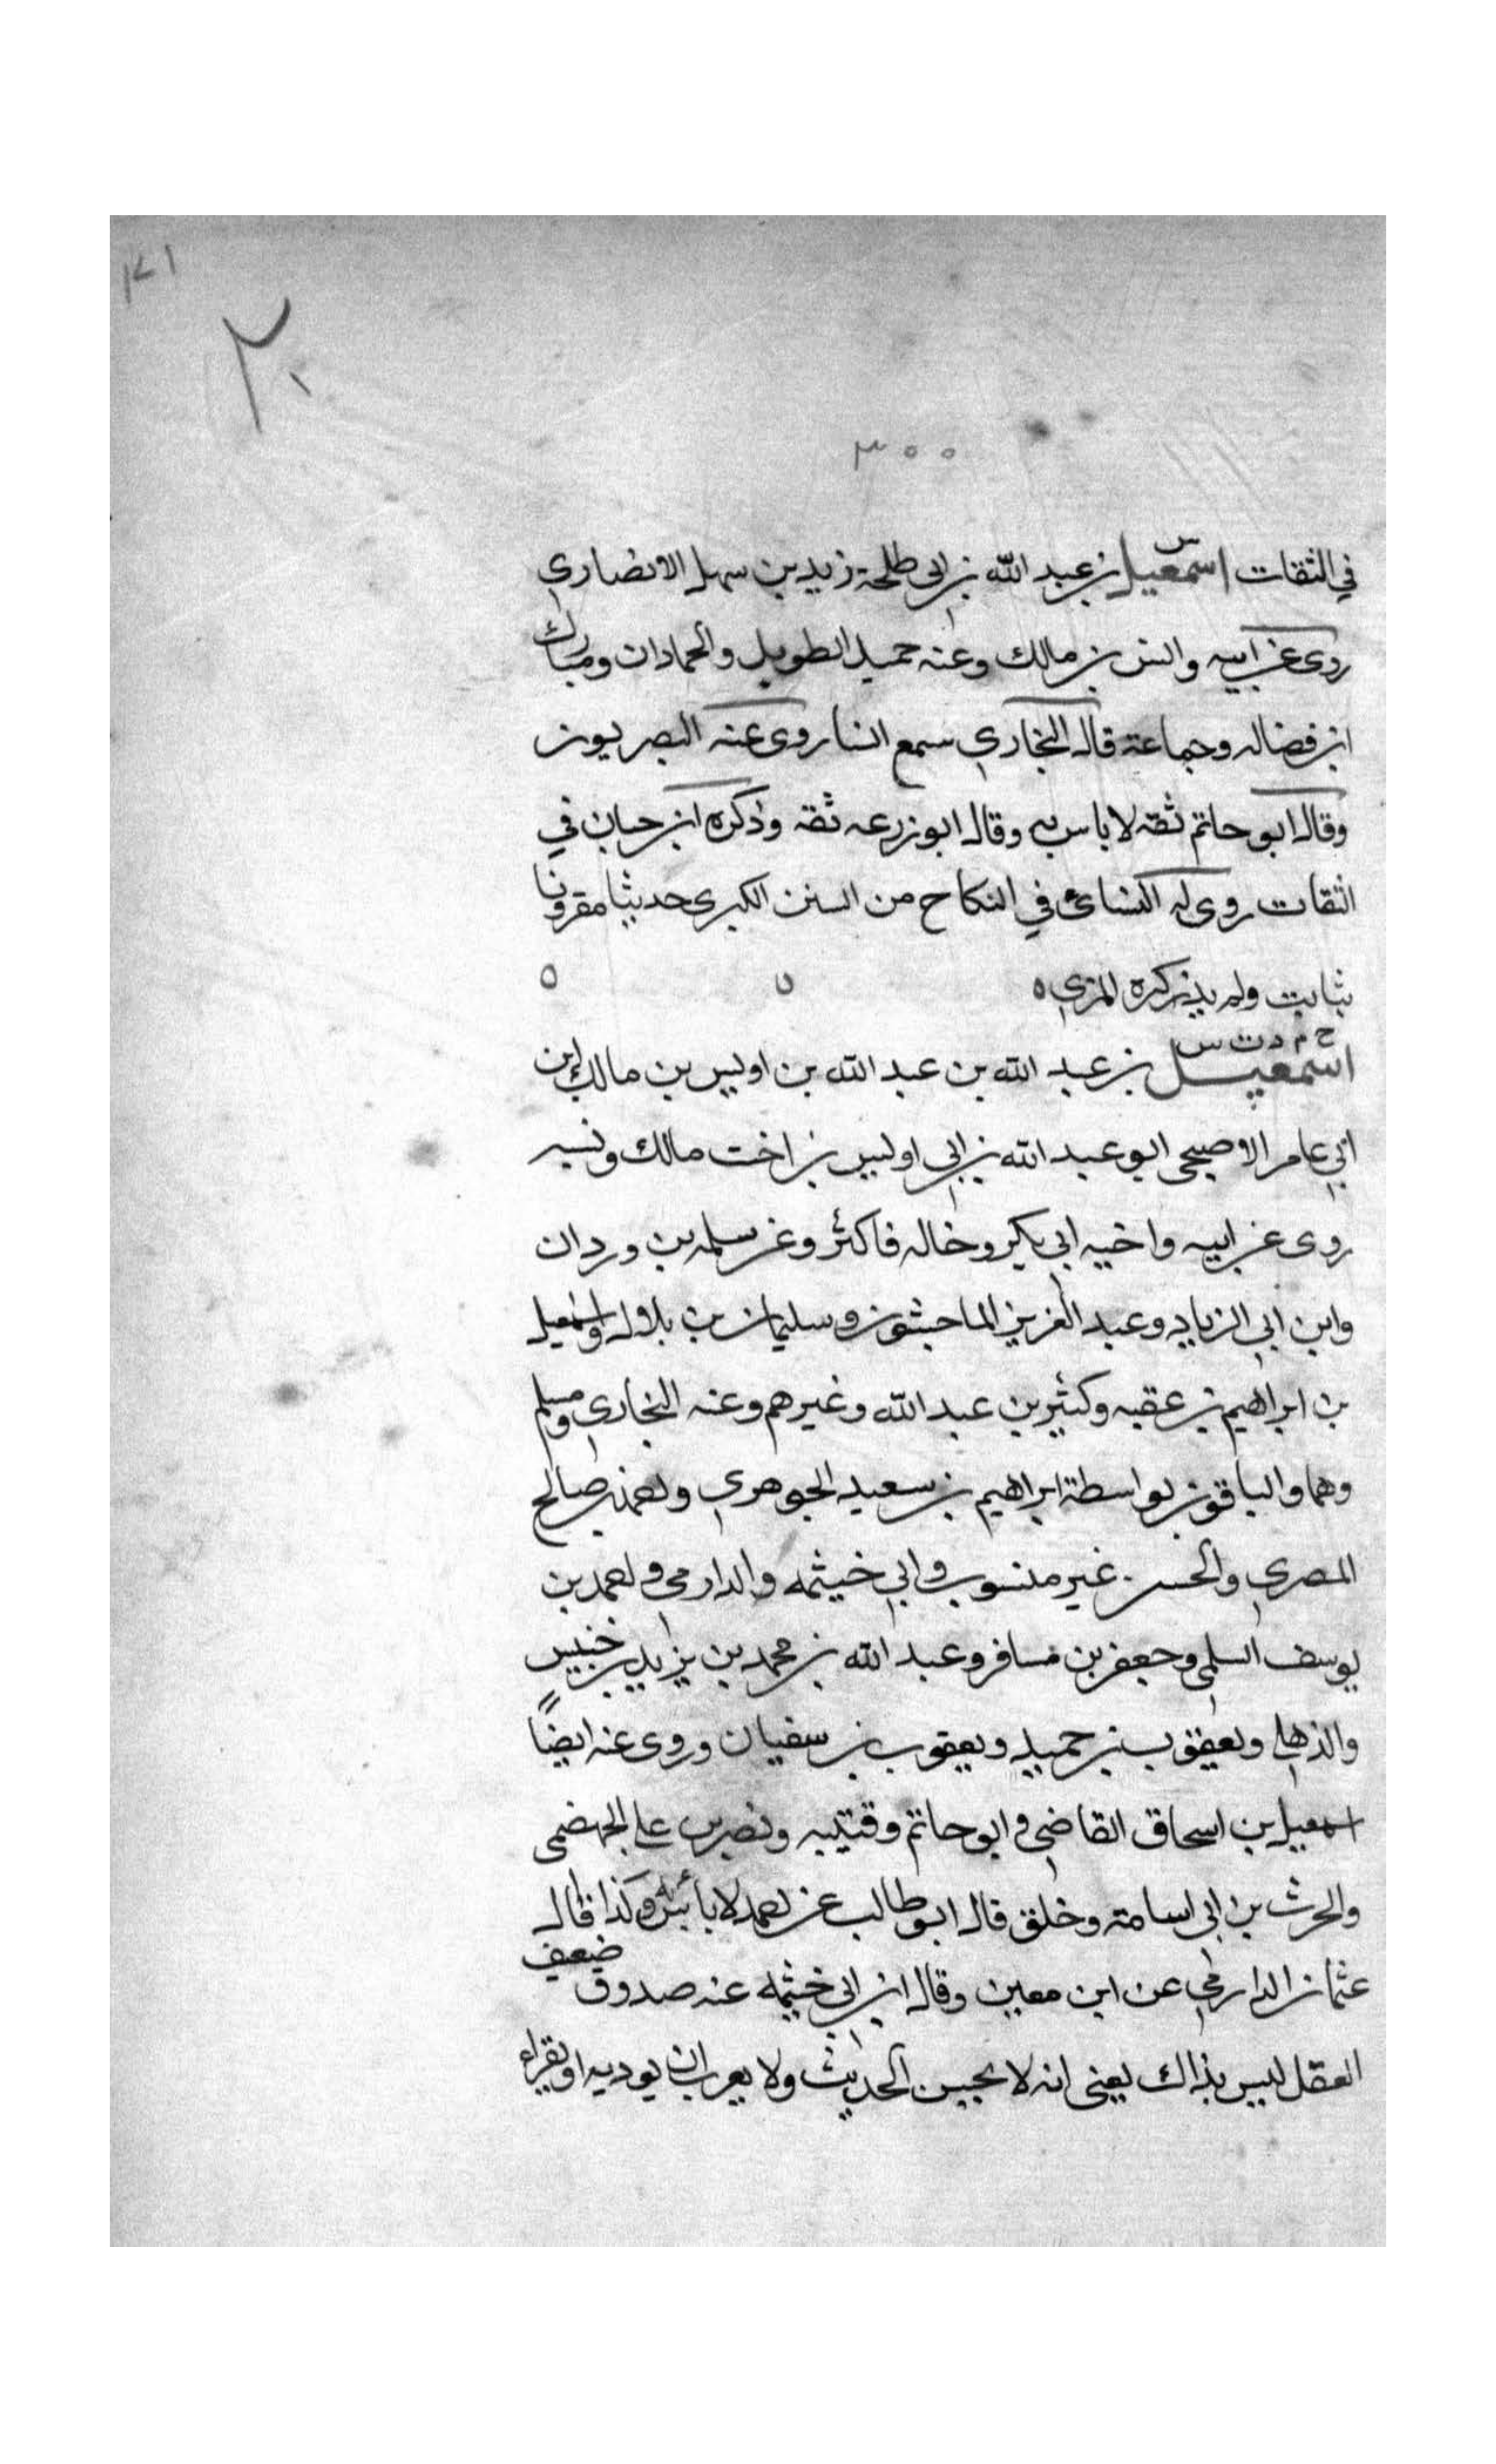 ١٧١
٢٠
٣٠٠
س
في الثقات اسمعيل بن عبد الله بن ابي طلحة زيد بن سهل الانصاري
روى عن ابيه وانس بن مالك وعنه حميد الطويل والحمادان ومبارك
ابن فضاله وجماعة قال البخاري سمع انسا روى عنه البصريون
وقال ابو حاتم ثقه لا باس به وقال ابو زرعه ثقه وذكره ابن حبان في
الثقات روى له النسائي في النكاح من السنن الكبرى حديثا مقرونا
بثابت ولم يذكره المزي ه ه ه
خ م د ت س
اسمعيل بن عبد الله بن عبد الله بن اويس بن مالك ابن
ابي عامر الاصبحي ابو عبد الله بن ابي اويس بن اخت مالك ونسيبه
روى عن ابيه واخيه ابي بكر وخاله فاكثر وعن سلمه بن وردان
وابن ابي الزناد وعبد العزيز الماجشون وسليمان بن بلال واسمعيل
بن ابراهيم بن عقبه وكثير بن عبد الله وغيرهم وعنه البخاري ومسلم
وهما والباقون بواسطة ابراهيم بن سعيد الجوهري واحمد بن صالح
المصري والحسن غير منسوب وابي خيثمه والدارمي واحمد بن
يوسف السلمي وجعفر بن مسافر وعبد الله بن محمد بن يزيد بن خنيس
والذهلي ويعقوب بن حميد ويعقوب بن سفيان وروى عنه ايضاً
اسمعيل بن اسحاق القاضي وابو حاتم وقتيبه ونصر بن علي الجهضمي
والحرث بن ابي اسامة وخلق قال ابو طالب عن احمد لا بأس به وكذا قال
عثمان الدارمي عن ابن معين وقال ابن ابي خيثمه عنه صدوق ضعيف
العقل ليس بذاك يعني انه لا يحسن الحديث ولا يعرف ان يوديه او يقراء